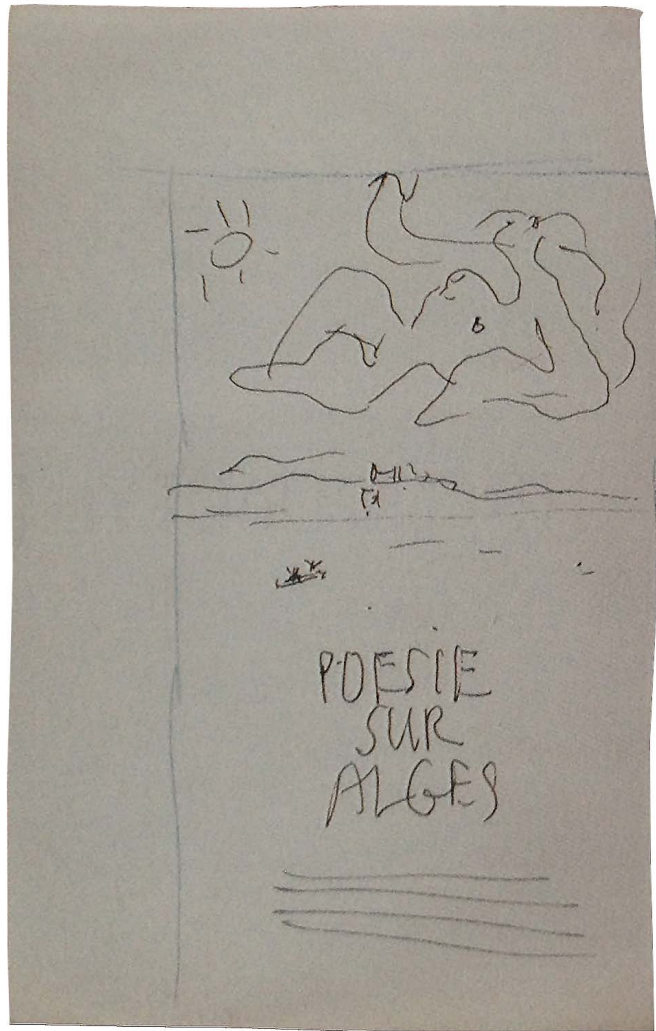 POESIE
SUR
ALGES